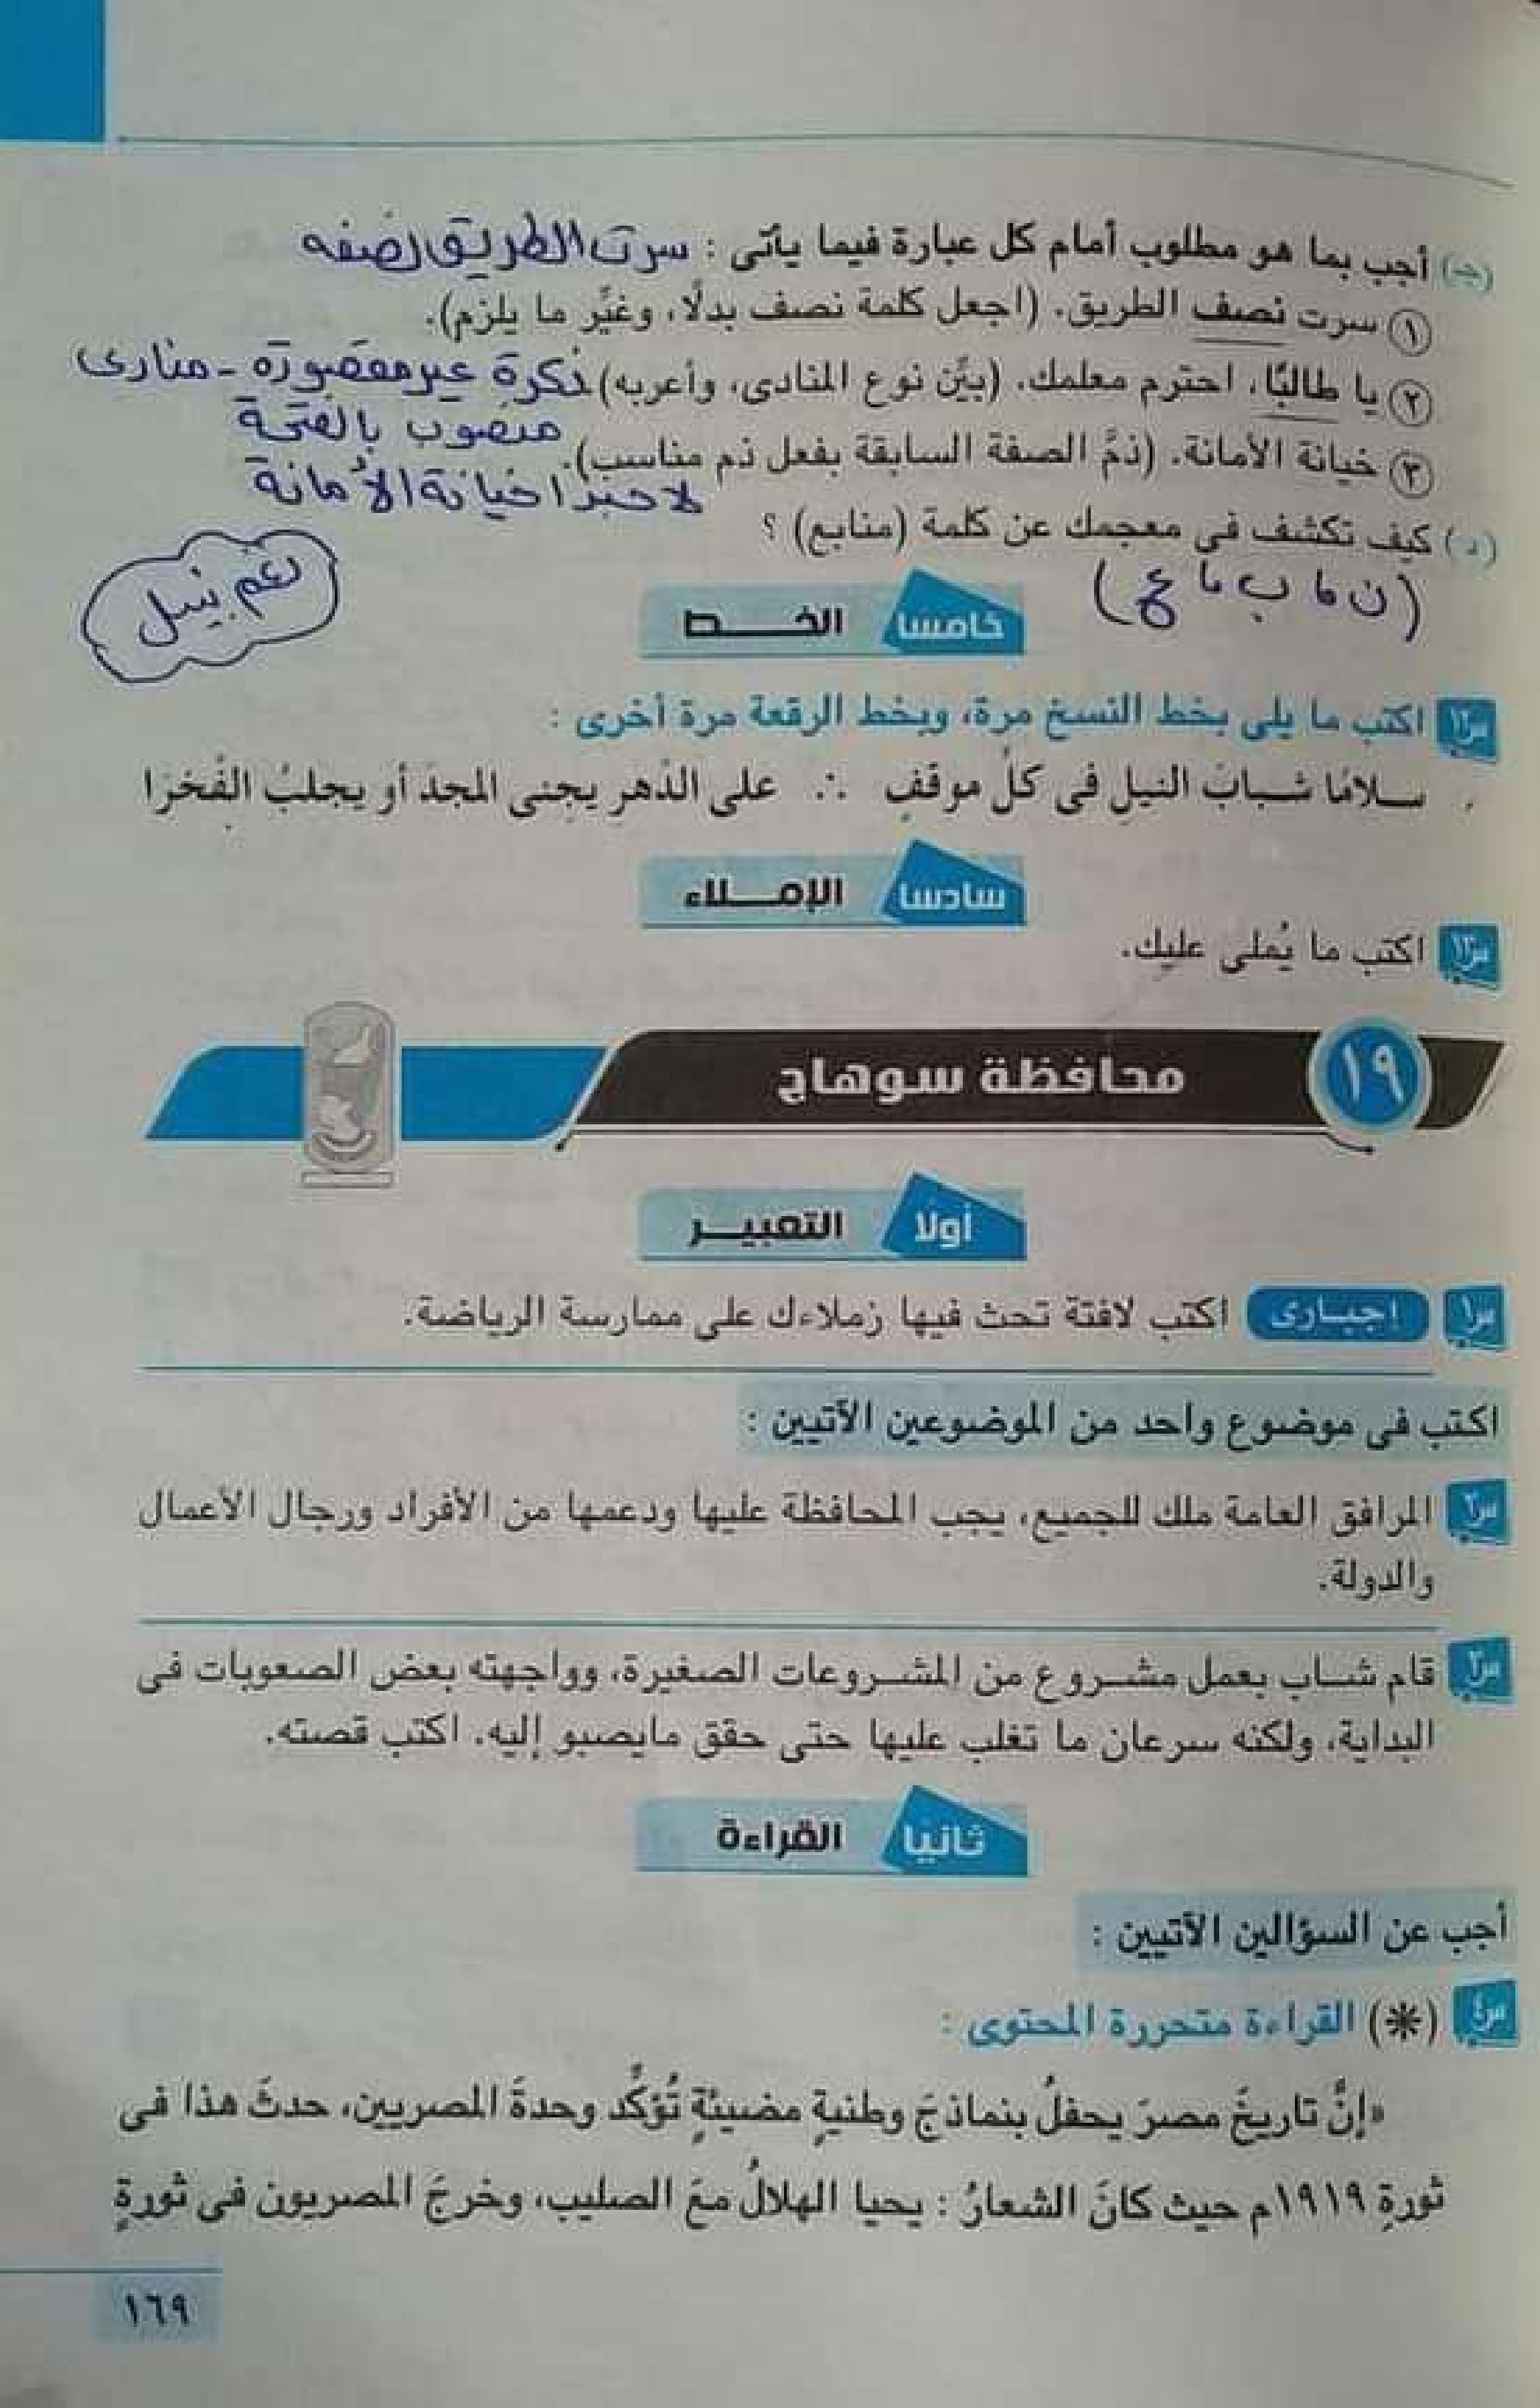 (جـ) أجب بما هو مطلوب أمام كل عبارة فيما يأتى : سرت الطريق نصفه
١ سرت نصف الطريق. (اجعل كلمة نصف بدلًا، وغيِّر ما يلزم).
٢ يا طالبًا، احترم معلمك. (بيِّن نوع المنادى، وأعربه) نكرة غير مقصورة - منادى
منصوب بالفتحة
٣ خيانة الأمانة. (ذمَّ الصفة السابقة بفعل ذم مناسب).
لا حبذا خيانة الأمانة
(د) كيف تكشف فى معجمك عن كلمة (منابع) ؟
(ن ، ب ، ع)
خامسا الخـــط
س١٢ اكتب ما يلى بخط النسخ مرة، وبخط الرقعة مرة أخرى :
سـلامًا شـبابَ النيلِ فى كلِّ موقفٍ ∴ على الدَّهرِ يجنى المجدَ أو يجلبُ الفَخرَا
سادسا الإمـــلاء
س١٣ اكتب ما يُملى عليك.
١٩ محافظة سوهاج
أولا التعبيـــر
س١ إجبـارى اكتب لافتة تحث فيها زملاءك على ممارسة الرياضة.
اكتب فى موضوع واحد من الموضوعين الآتيين :
س٢ المرافق العامة ملك للجميع، يجب المحافظة عليها ودعمها من الأفراد ورجال الأعمال
والدولة.
س٣ قام شـاب بعمل مشـروع من المشـروعات الصغيرة، وواجهته بعض الصعوبات فى
البداية، ولكنه سرعان ما تغلب عليها حتى حقق مايصبو إليه. اكتب قصته.
ثانيا القراءة
أجب عن السؤالين الآتيين :
س٤ (*) القراءة متحررة المحتوى :
«إنَّ تاريخَ مصرَ يحفلُ بنماذجَ وطنيةٍ مضيئةٍ تُؤكِّد وحدةَ المصريين، حدثَ هذا فى
ثورةِ ١٩١٩م حيث كانَ الشعارُ : يحيا الهلالُ معَ الصليب، وخرجَ المصريون فى ثورةٍ
١٦٩